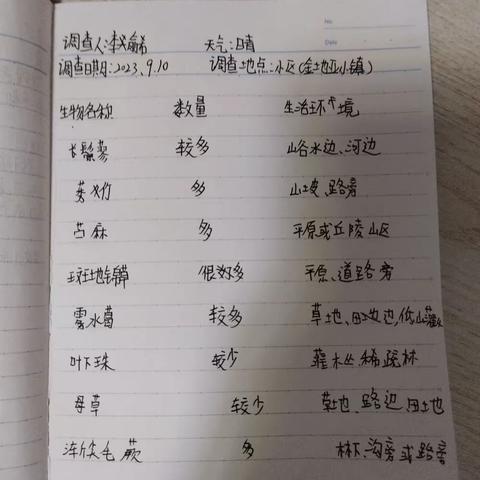 No.
Date
调查人: 天气:晴
调查日期:2023.9.10 调查地点:小区(金地亚小镇)
生物名称 数量 生活环境
长鬃蓼 较多 山谷水边、河边
多 山坡、路旁
苎麻 多 平原或丘陵山区
斑地锦草 很多 平原、道路旁
雾水葛 较多 草地、田边,低山灌
叶下珠 较少 灌木丛,稀疏林
母草 较少 草地、路边、田地
毛蕨 多 林下、沟旁或路旁